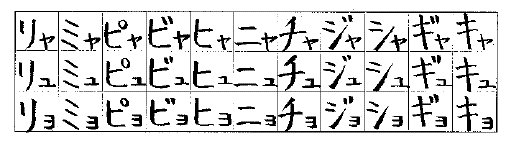 リャ ミャ ピャ ビャ ヒャ ニャ チャ ジャ シャ ギャ キャ
リュ ミュ ピュ ビュ ヒュ ニュ チュ ジュ シュ ギュ キュ
リョ ミョ ピョ ビョ ヒョ ニョ チョ ジョ ショ ギョ キョ